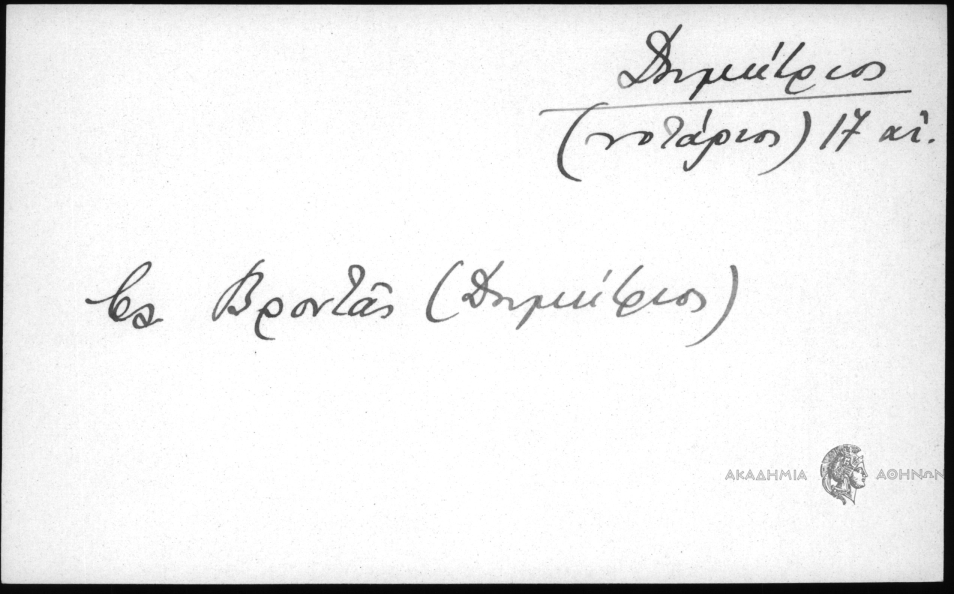 Δημήτριος
(νοτάριος) 17 αἰ.
Βροντᾶς (Δημήτριος)
ΑΚΑΔΗΜΙΑ ΑΘΗΝΩΝ